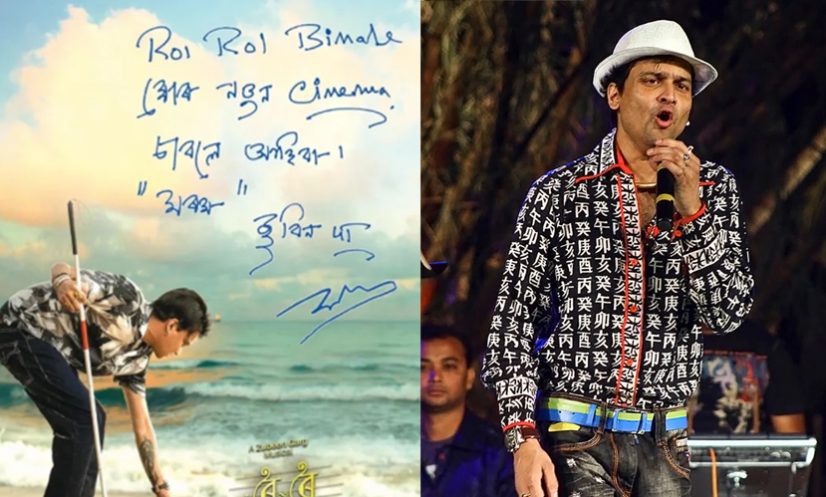 Roi Roi Binale
মোৰ নতুন Cinema.
চাবলৈ আহিবা।
"মৰম"
জুবিন দা
A Zubeen Garg
Musical
ৰৈ ৰৈ